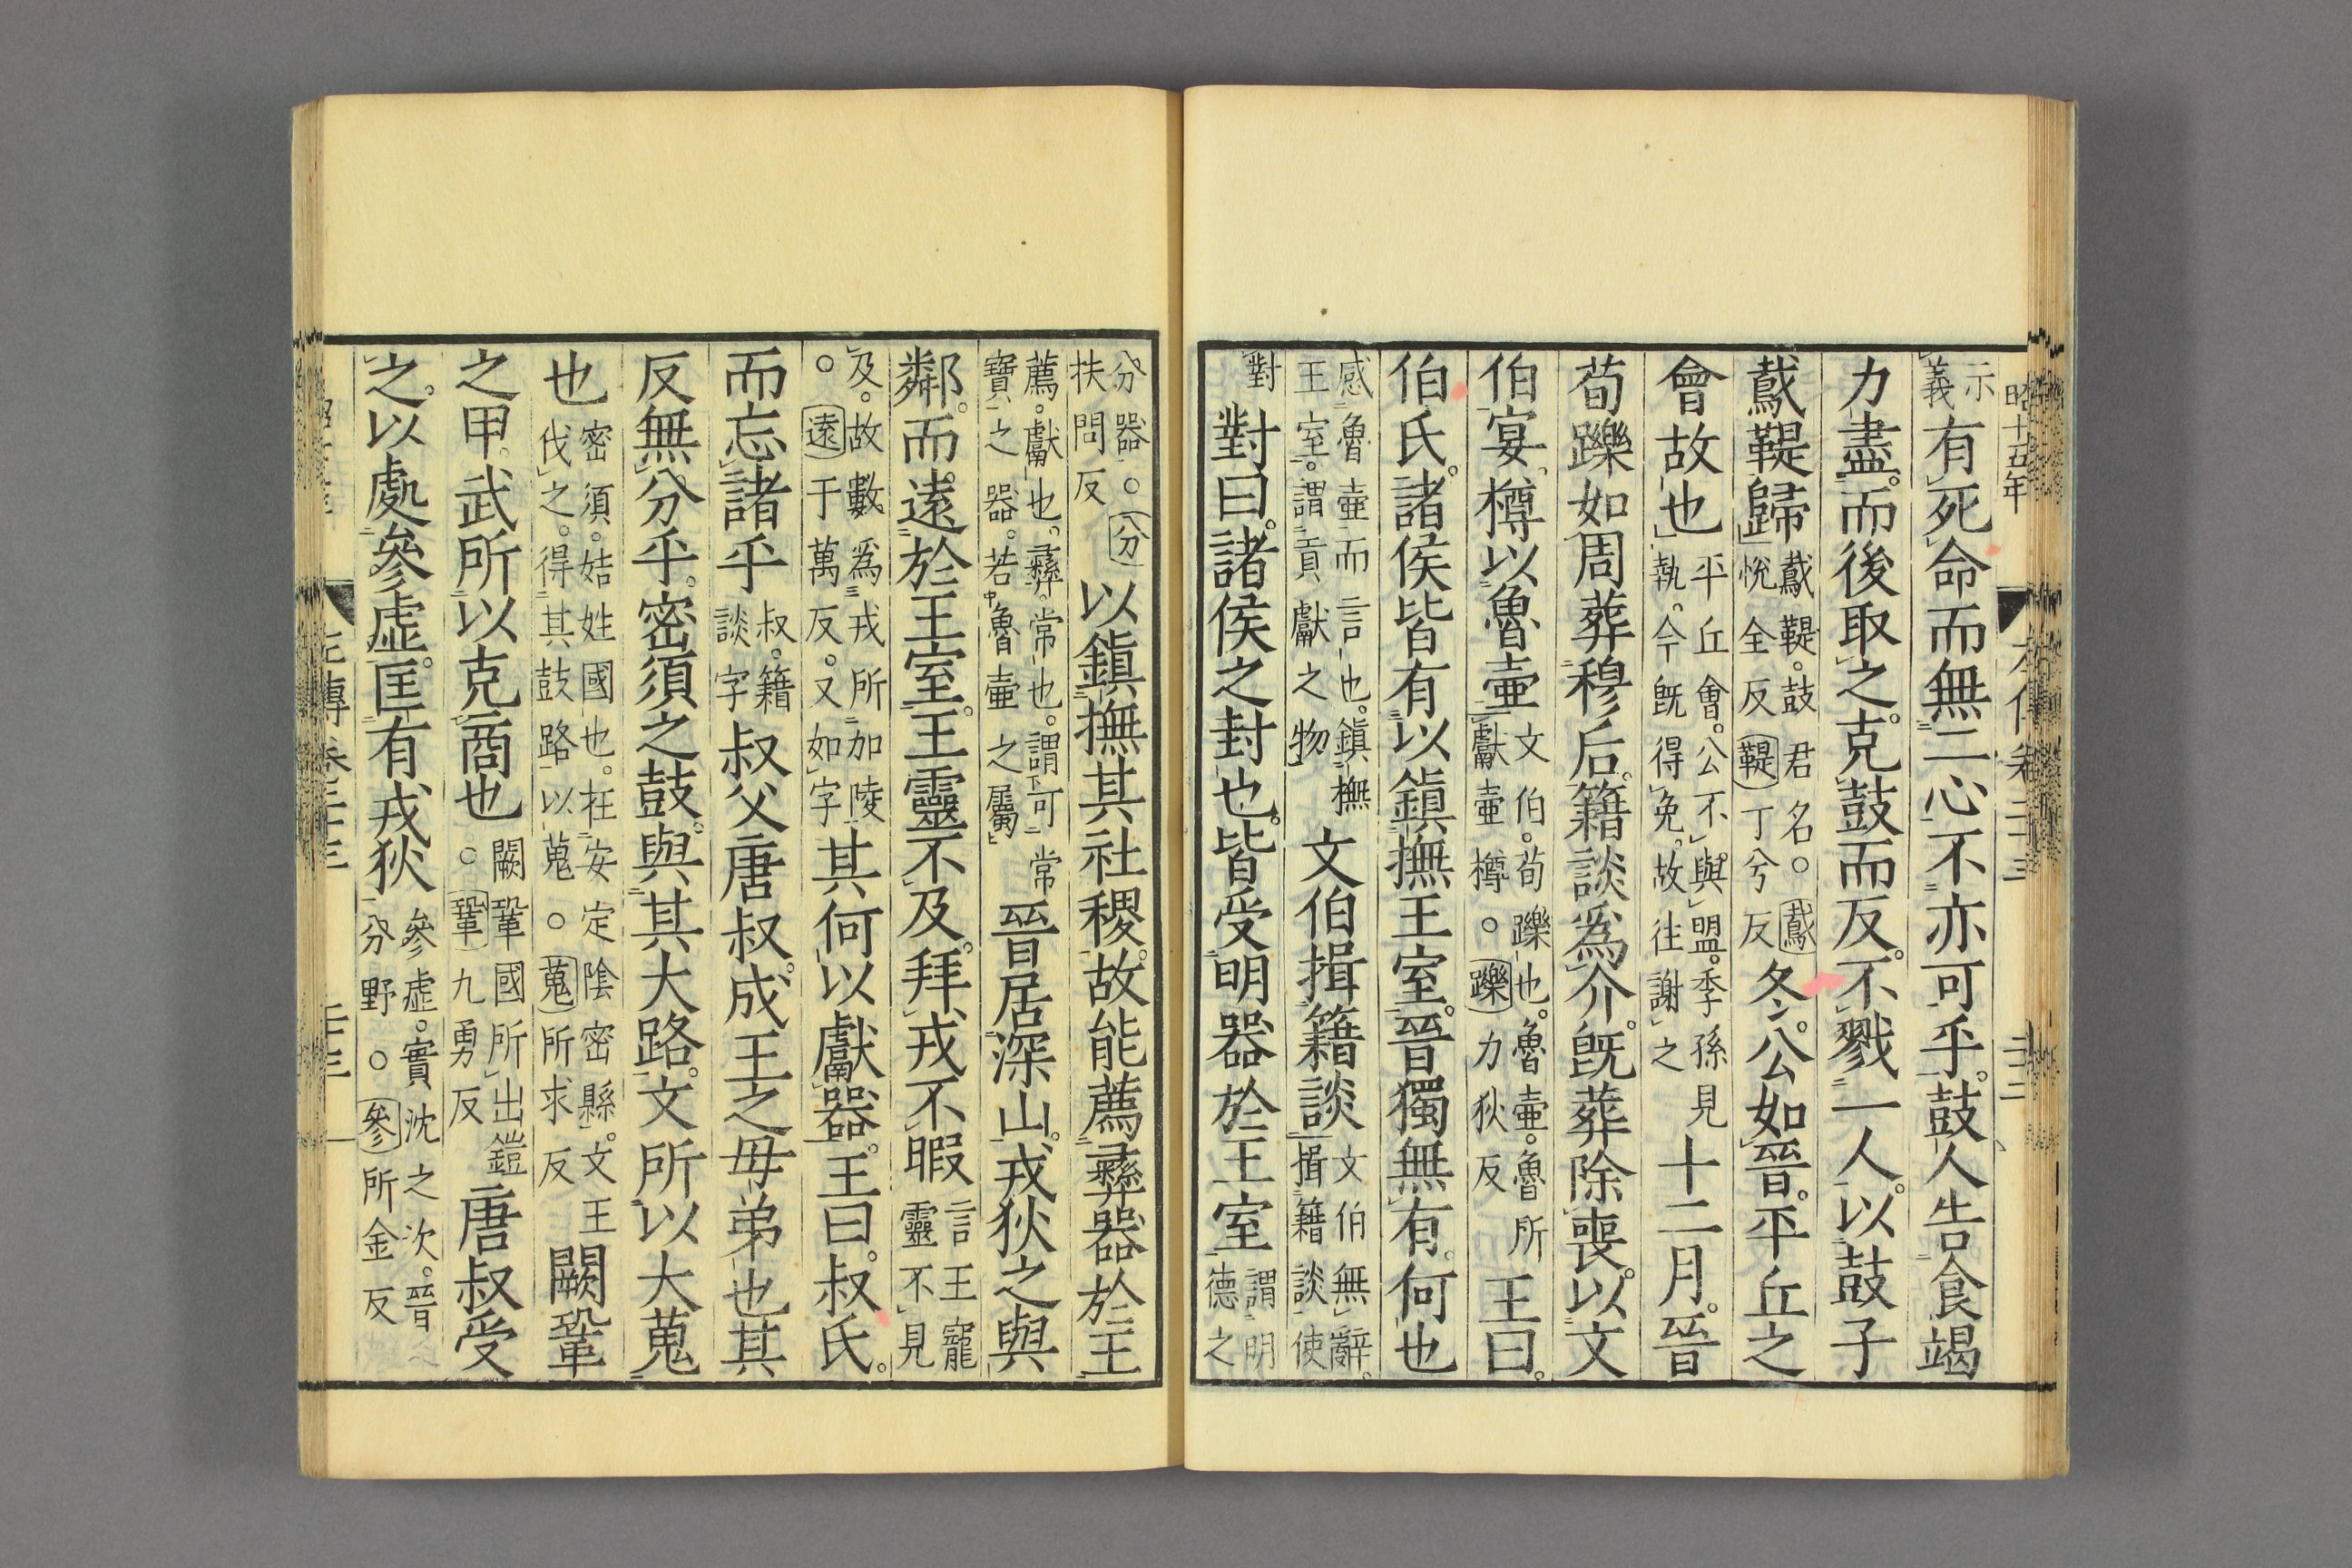 昭十五年
示義有死命而無二心不亦可乎鼓人告食竭
力盡而後取之克鼓而反不戮一人以鼓子
鳶鞮歸鳶鞮鼓君名○鳶悅全反鞮丁兮反冬公如晉平丘之
會故也平丘會公不與盟季孫見執今既得免故往謝之十二月晉
荀躒如周葬穆后籍談爲介既葬除喪以文
伯宴樽以魯壺文伯荀躒也魯壺魯所獻壺樽○躒力狄反王曰
伯氏諸侯皆有以鎭撫王室晉獨無有何也
感魯壺而言也鎭撫王室謂貢獻之物文伯揖籍談文伯無辭揖籍談使
對對曰諸侯之封也皆受明器於王室謂明德之
分器○分扶問反以鎭撫其社稷故能薦彝器於王
薦獻也彝常也謂可常寶之器若魯壺之屬晉居深山戎狄之與
鄰而遠於王室王靈不及拜戎不暇言王寵靈不見
及故數爲戎所加陵○遠于萬反又如字其何以獻器王曰叔氏
而忘諸乎叔籍談字叔父唐叔成王之母弟也其
反無分乎密須之鼓與其大路文所以大蒐
也密須姞姓國也在安定陰密縣文王伐之得其鼓路以蒐○蒐所求反闕鞏
之甲武所以克商也闕鞏國所出鎧○鞏九勇反唐叔受
之以處參虛匡有戎狄參虛實沈之次晉分野○參所金反